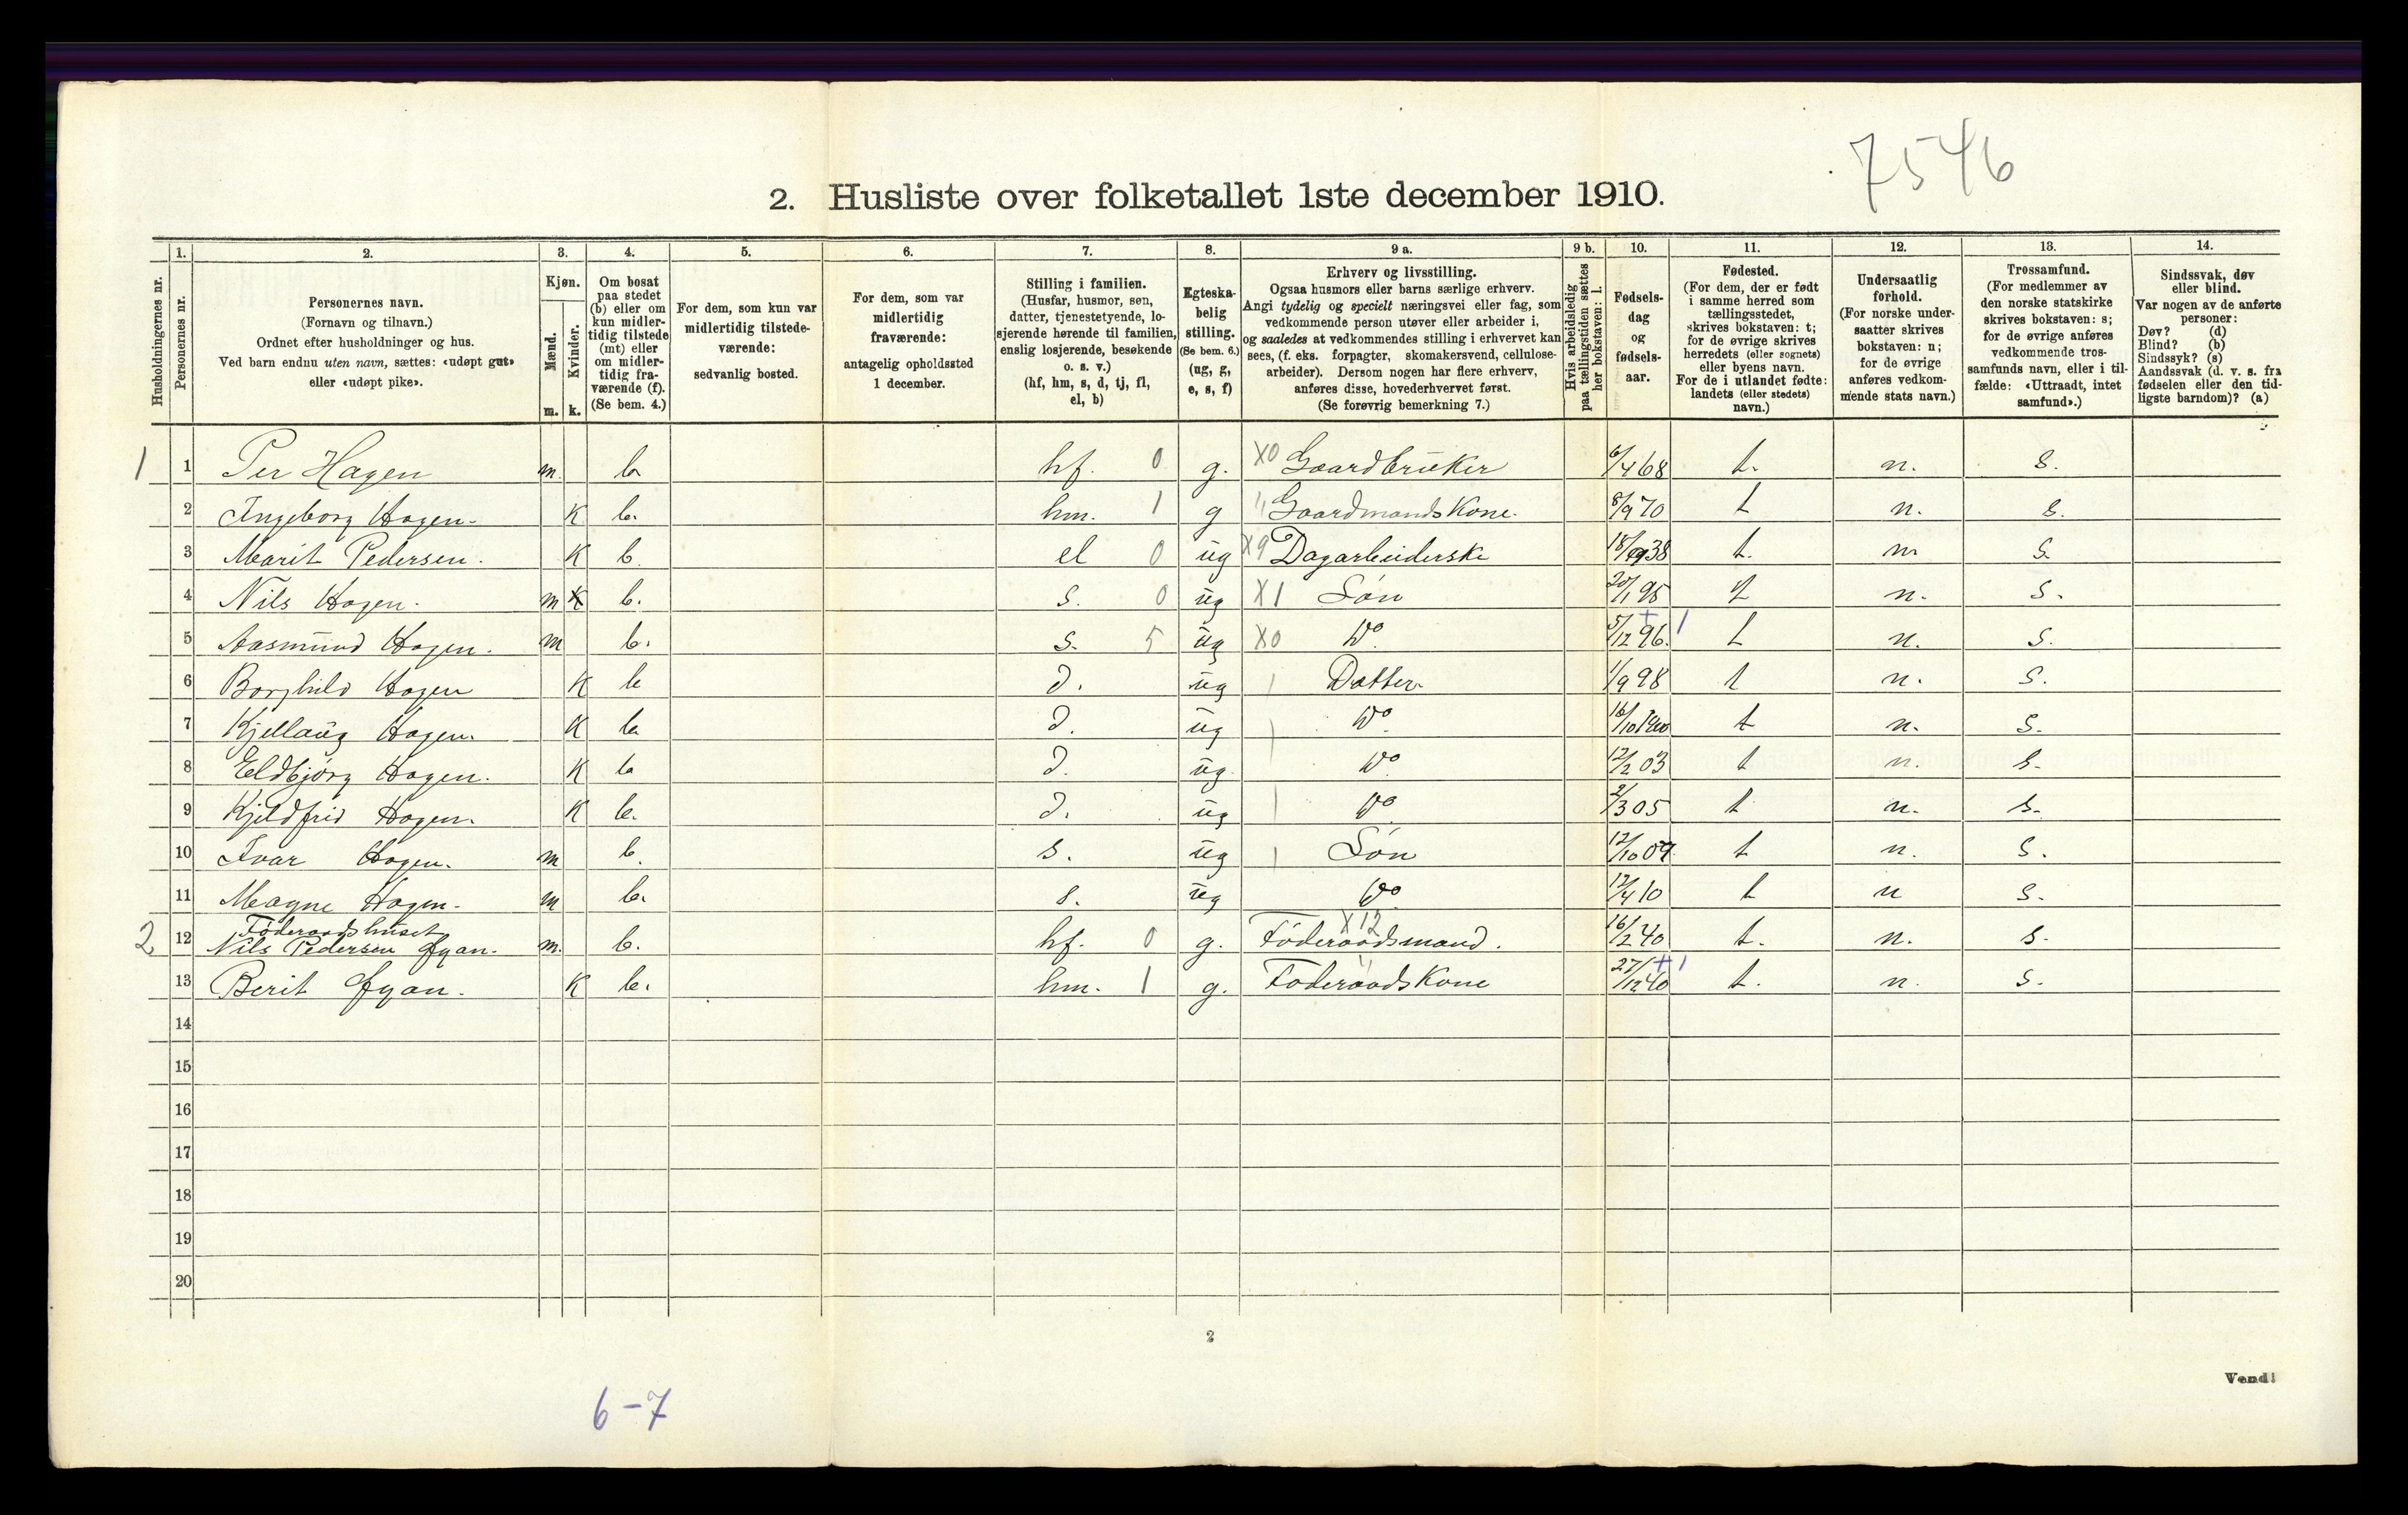 7546
2. Husliste over folketallet 1ste december 1910.
Husholdningernes nr.
1.
Personernes nr.
2.
Personernes navn.
(Fornavn og tilnavn.)
Ordnet efter husholdninger og hus.
Ved barn endnu uten navn, sættes: «udøpt gut»
eller «udøpt pike».
3.
Kjøn.
Mænd.
m.
Kvinder.
k.
4.
Om bosat
paa stedet
(b) eller om
kun midler-
tidig tilstede
(mt) eller
om midler-
tidig fra-
værende (f).
(Se bem. 4.)
5.
For dem, som kun var
midlertidig tilstede-
værende:
sedvanlig bosted.
6.
For dem, som var
midlertidig
fraværende:
antagelig opholdssted
1 december.
7.
Stilling i familien.
(Husfar, husmor, søn,
datter, tjenestetyende, lo-
sjerende hørende til familien,
enslig losjerende, besøkende
o. s. v.)
(hf, hm, s, d, tj, fl,
el, b)
8.
Egteska-
belig
stilling.
(Se bem. 6.)
(ug, g,
e, s, f)
9 a.
Erhverv og livsstilling.
Ogsaa husmors eller barns særlige erhverv.
Angi tydelig og specielt næringsvei eller fag, som
vedkommende person utøver eller arbeider i,
og saaledes at vedkommendes stilling i erhvervet kan
sees, (f. eks. forpagter, skomakersvend, cellulose-
arbeider). Dersom nogen har flere erhverv,
anføres disse, hovederhvervet først.
(Se forøvrig bemerkning 7.)
9 b.
Hvis arbeidsledig
paa tællingstiden sættes
her bokstaven: l.
10.
Fødsels-
dag
og
fødsels-
aar.
11.
Fødested.
(For dem, der er født
i samme herred som
tællingsstedet,
skrives bokstaven: t;
for de øvrige skrives
herredets (eller sognets)
eller byens navn.
For de i utlandet fødte:
landets (eller stedets)
navn.)
12.
Undersaatlig
forhold.
(For norske under-
saatter skrives
bokstaven: n;
for de øvrige
anføres vedkom-
mende stats navn.)
13.
Trossamfund.
(For medlemmer av
den norske statskirke
skrives bokstaven: s;
for de øvrige anføres
vedkommende tros-
samfunds navn, eller i til-
fælde: «Uttraadt, intet
samfund».)
14.
Sindssvak, døv
eller blind.
Var nogen av de anførte
personer:
Døv? (d)
Blind? (b)
Sindssyk? (s)
Aandssvak (d. v. s. fra
fødselen eller den tid-
ligste barndom)? (a)
1 1 Per Hagen m. b. hf. 0 g. X0 Gaardbruker 6/4 68 t. n. s.
2 Ingeborg Hagen. K b. hm. 1 g " Gaardmands Kone. 8/9 70 t n. s.
3 Marit Pedersen. K b. el 0 ug X9 Dagarbeiderske 18/9 38 t. n. s.
4 Nils Hagen. m b. s. 0 ug X1 Søn 20/1 95 t n. s.
5 Aasmund Hagen. m b. s. 5 ug X0 Do 5/12 96. + 1 t n. s.
6 Borghild Hagen K b d. ug Datter 1/9 98 t n. s.
7 Kjellaug Hagen. K b. d. ug Do 16/10 1900 t n. s.
8 Eldbjørg Hagen. K b d. ug. Do 12/2 03 t n. s.
9 Kjeldfrid Hagen. K b. d. ug Do 2/3 05 t n. s.
10 Ivar Hagen. m b. s. ug Søn 12/10 07 t n. s.
11 Magne Hagen. m b. s. ug Do 12/4 10 t n s.
Föderaadshuset
2 12 Nils Pedersen Gjan. m. b. hf. 0 g. X12 Föderaadsmand. 16/2 40 t. n. s.
13 Berit Gjan. K b. hm. 1 g. " Föderaads Kone 27/12 40 + 1 t. n. s.
14
15
16
17
18
19
20
2
Vend!
6-7